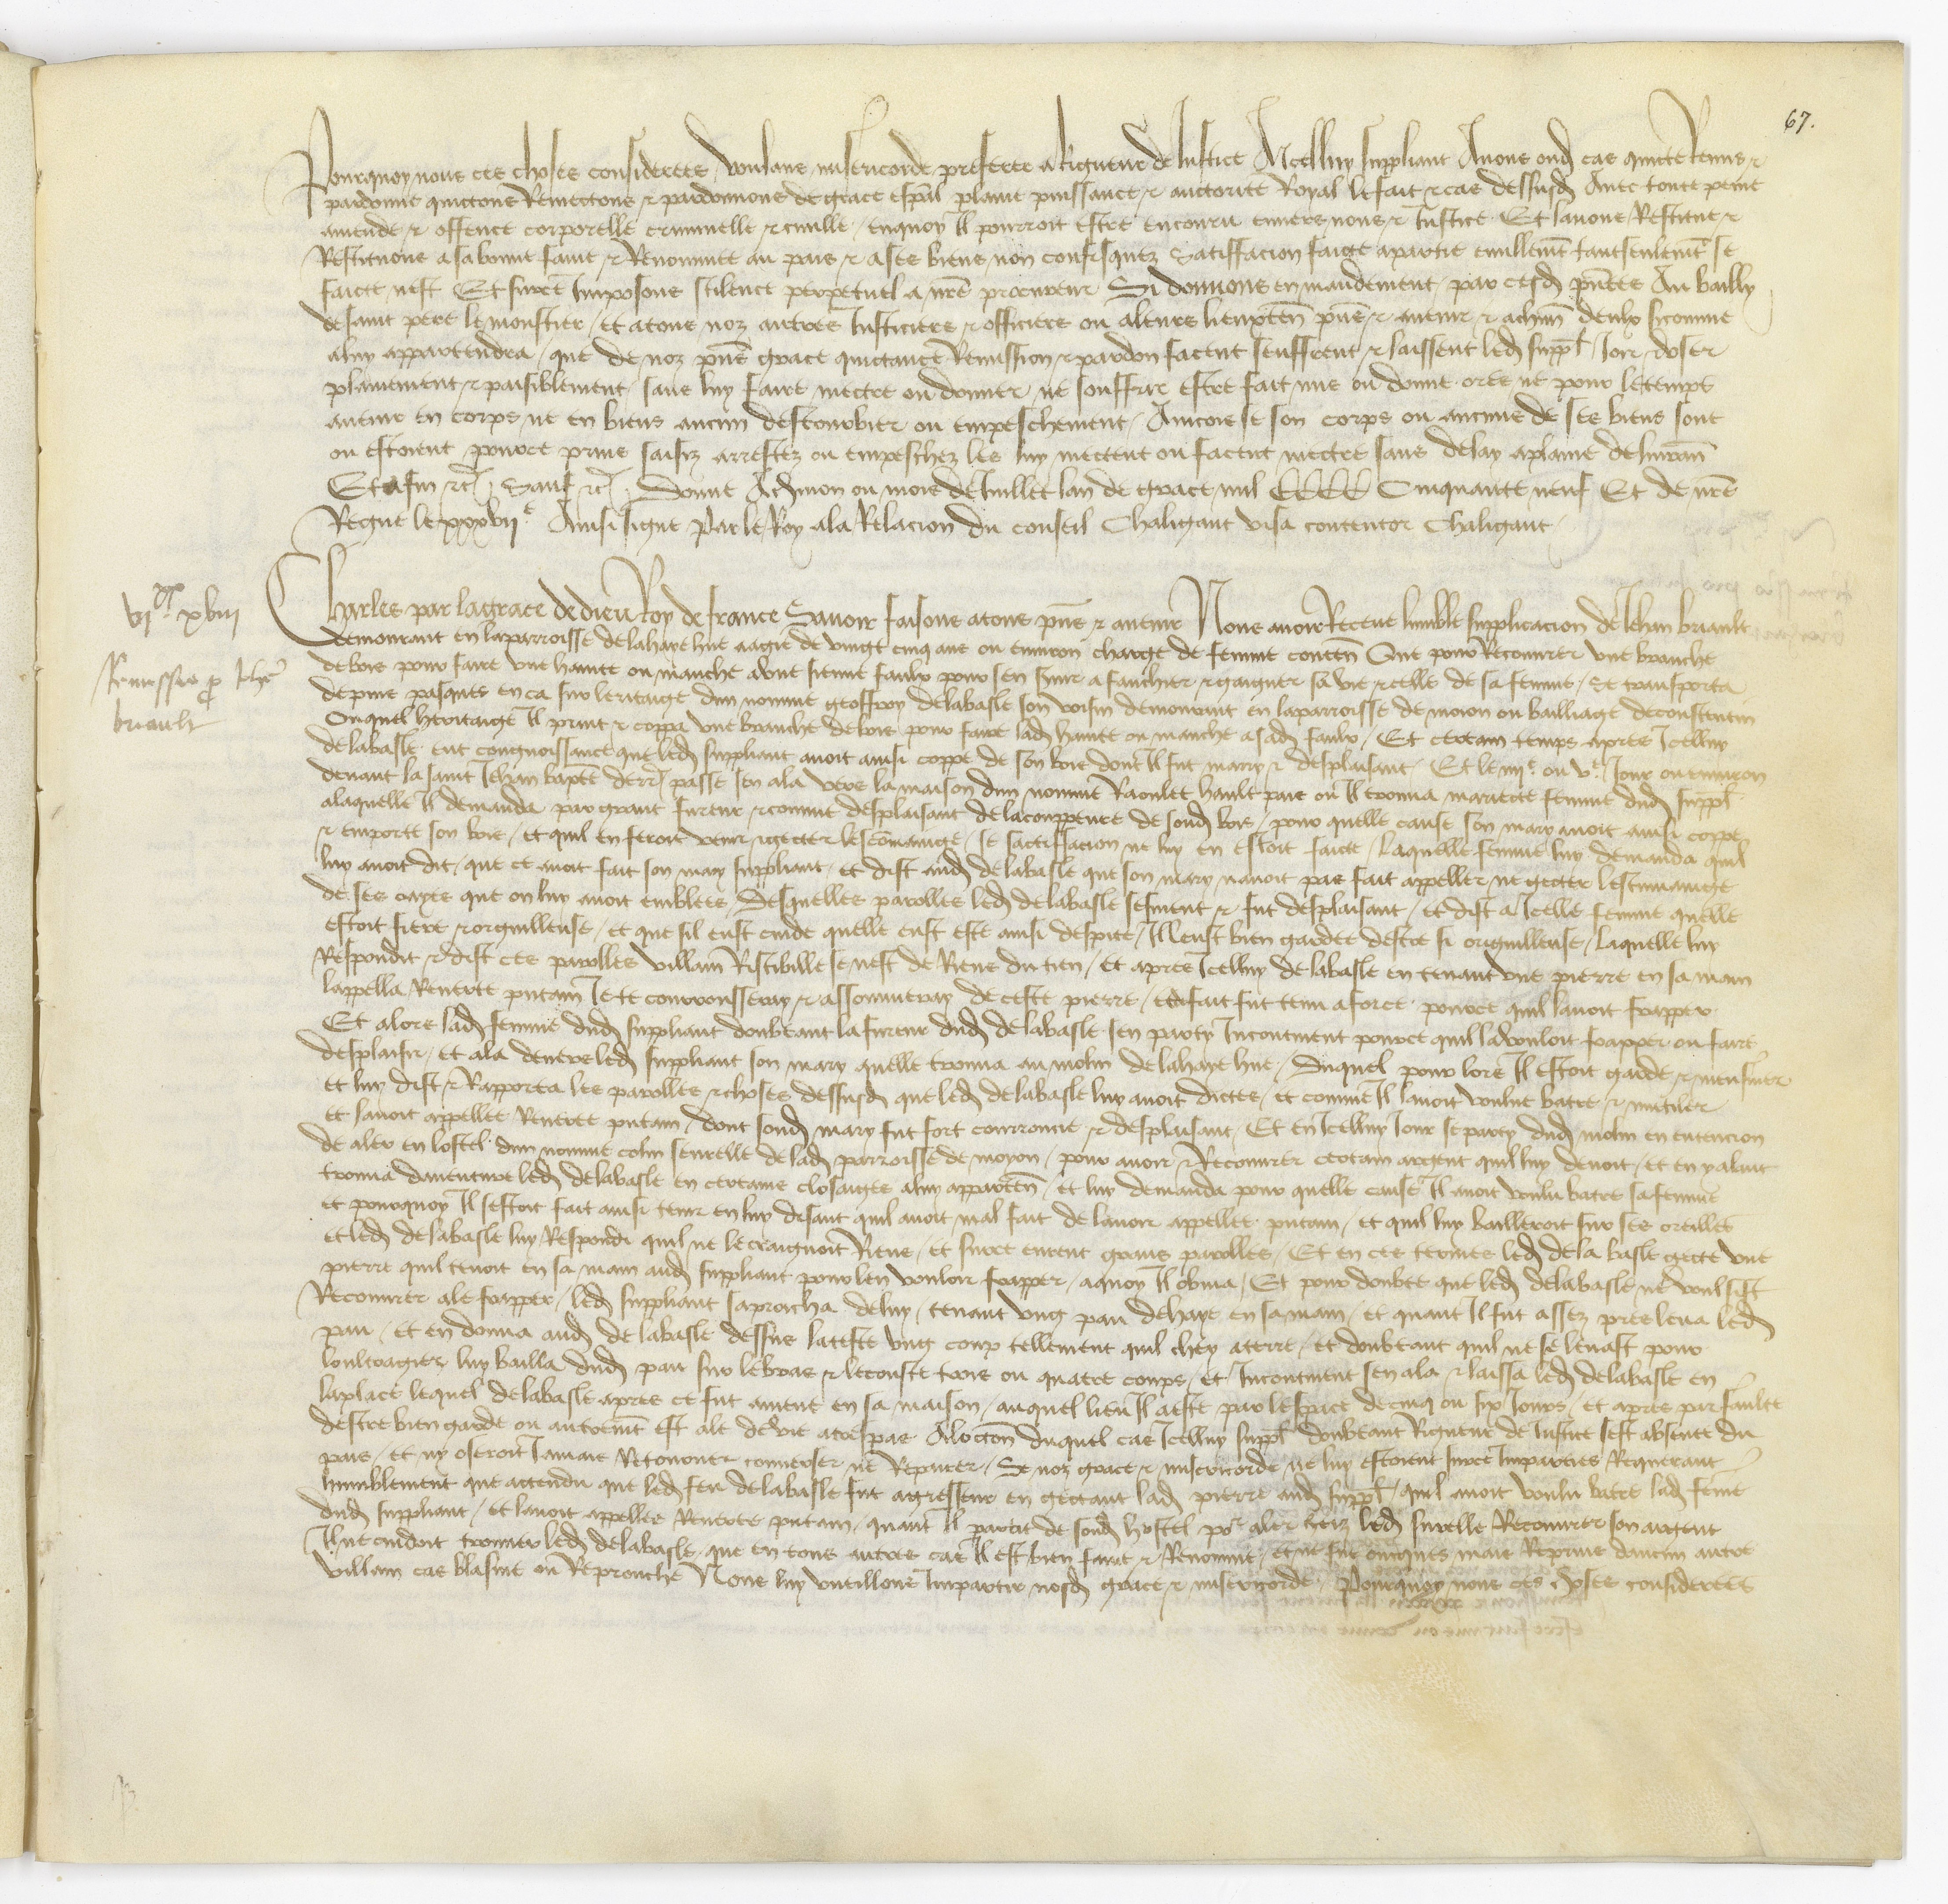 67.
Pourquoy nous ces choses considerees voulans misericorde preferer a Rigueur de Justice A icelluy suppliant Avons oud cas quicte Remis &
pardonne quictons Remectons & pardonnons de grace espal plaine puissance & auctorite Royal le fait & cas dessusd Avec toute peine
amende & offence corporelle criminelle & civille enquoy Il pourroit estre encouru envers nous & Justice Et lavons Restitue &
Restituons a sa bonne fame & Renommee au pais & a ses biens non confisquez Satisfacion faicte a partie civillemt tant seulemt se
faicte nest Et surce Imposons scilence perpetuel a nre procureur Si donnons en mandement par cesd pntes Au bailly
de saint pere le monstier et a tous noz autres Justiciers & officiers ou a leurs lieuxten pns & avenir & a chun deulx sicomme
a luy appartendra que de noz pns grace quictance Remission & pardon facent seuffrent & laissent led suppl Joir & user
plainement & paisiblement sans luy faire mectre ou donner ne souffrir estre fait mis ou donne ores ne pour le temps
avenir en corps ne en biens aucun destourbier ou empeschement Aincois se son corps ou aucuns de ses biens sont
ou estoient pource prins saisiz arrestez ou empeschez les luy mectent ou facent mectre sans delay a plaine delivran
Et afin &c Sauf &c Donne A chinon ou mois de Juillet lan de grace mil CCCC Cinquante neuf Et de nre
Regne le xxxvije Ainsi signe Par le Roy a la Relacion du conseil Chaligaut visa contentor Chaligaut
vjxx xviij
Remissio p Jhe
briault
Charles par la grace de dieu Roy de france Savoir faisons a tous pns & avenir Nous avoir Receue lumble supplicacion de Jehan briault
demourant en la parroisse de lahaye hue aagie de vingt cinq ans ou environ charge de femme conten Que pour Recouvrer une branche
de bois pour faire une hante ou manche a une sienne faulx pour sen servir a fauchier & gaigner sa vie & celle de sa femme se transporta
depuis pasques en ca sur leritaige dun nomme geoffroy delabasle son voisin demourant en la parroisse de moion ou bailliage de constentin
Ouquel heritaige Il print & coppa une branche de bois pour faire lad hante ou manche a sad faulx Et certain temps apres Icelluy
delabasle eut congnoissance que led suppliant avoit ainsi coppe de son bois dont Il fut marry & desplaisant Et le iiije ou ve Jour ou environ
devant la saint Jehan bapte derr passe sen ala vers la maison dun nomme Raoulet hault pas ou Il trouva mariecte femme dud suppl
a laquelle Il demanda par grant fureur & comme desplaisant de la couppeure de soud bois pour quelle cause son mary avoit ainsi coppe
& emporte son bois et quil en feroit venir & gecter lescomaiige se sactisfacion ne luy en estoit faicte Laquelle femme luy demanda quil
luy avoit dit que ce avoit fait son mary suppliant et dist aud delabasle que son mary navoit pas fait appeller ne gecter lescumaiige
de ses oayes que on luy avoit emblees Desquelles parolles led delabasle sesmeut & fut desplaisant et dist a Icelle femme quelle
estoit fiere & orguilleuse et que sil eust cuide quelle eust este ainsi despite Il leust bien gardee destre si orguilleuse Laquelle luy
Respondit & dist ces parolles villain se nest de Riens du tien Et apres Icelluy delabasle en tenant une pierre en sa main
lappella Reniee putain Je te courrousseray & assommeray de ceste pierre et de fait fut tenu a force pource quil lavoit frapper
Et alors lad femme dud suppliant doubtant la fureur dud delabasle sen party Incontinent pource quil la vouloit frapper ou faire
desplaisir et ala devers led suppliant son mary quelle trouva au molin de lahaye hue Duquel pour lors Il estoit garde & meusnier
et luy dist & Rapporta les parolles & choses dessusd que led delabasle luy avoit dictes et comme Il lavoit voulue batre & mutiler
et lavoit appellee Reniee putain dont soud mary fut fort courrouce & desplaisant Et en Icelluy Jour se party dud molin en entencion
de aler en lostel dun nomme colin seurelle de lad parroisse de moyon pour avoir & Recouvrer certain argent quil luy devoit et en y alant
trouva daventure led delabasle en certains closaiges a luy apparten et luy demanda pour quelle cause Il avoit voulu batre sa femme
et pourquoy Il sestoit fait ainsi tenir en luy disant quil avoit mal fait de lavoir appellee putain et quil luy bailleroit sur ses oreilles
et led delabasle luy Respondi quil ne le craignoit Riens et surce eurent grans parolles Et en ces termes led dela basle gecte une
pierre quil tenoit en sa main aud suppliant pour len vouloir frapper a quoy Il obvia Et pour doubte que led delabasle ne voulsist
Recouvrer a le frapper led suppliant saproucha deluy tenant ung pau de haye en sa main et quant Il fut assez pres leva led
pau et en donna aud delabasle dessus la teste ung coup tellement quil chey a terre et doubtant quil ne se levast pour
loultragier luy bailla dud pau sur le bras & le couste trois ou quatre coups et Incontinent sen ala & laissa led delabasle en
la place lequel delabasle apres ce fut amene en sa maison auquel lieu Il a este par lespace de cinq ou six Jours et apres par faulte
destre bien garde ou autremt est ale de vie a trespas A loccon duquel cas Icelluy suppl doubtant Rigueur de Justice sest absente du
pais et ny oseroit Jamais Retourner converser ne Reperer Se noz grace & misericorde ne luy estoient surce Imparties Requerant
humblement que actendu que led feu delabasle fut agresseur en gectant lad pierre aud suppl quil avoit voulu batre lad feme
dud suppliant et lavoit appellee Reniee putain quant Il partit de soud hostel por aler chiez led surelle Recouvrer son argent
Il ne cuidoit trouver led delabasle que en tous autres cas Il est bien fame & Renomme et ne fut oncques mais Reprins daucun autre
villain cas blasme ou Reprouche Nous luy vueillons Impartir nosd grace & misericorde Pourquoy nous ces choses considerees